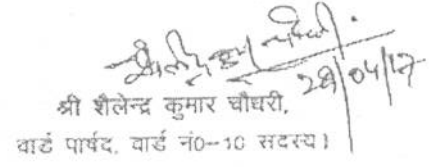 28/04/17
श्री शैलेन्द्र कुमार चौधरी,
वार्ड पार्षद, वार्ड नं0-10 सदस्य।